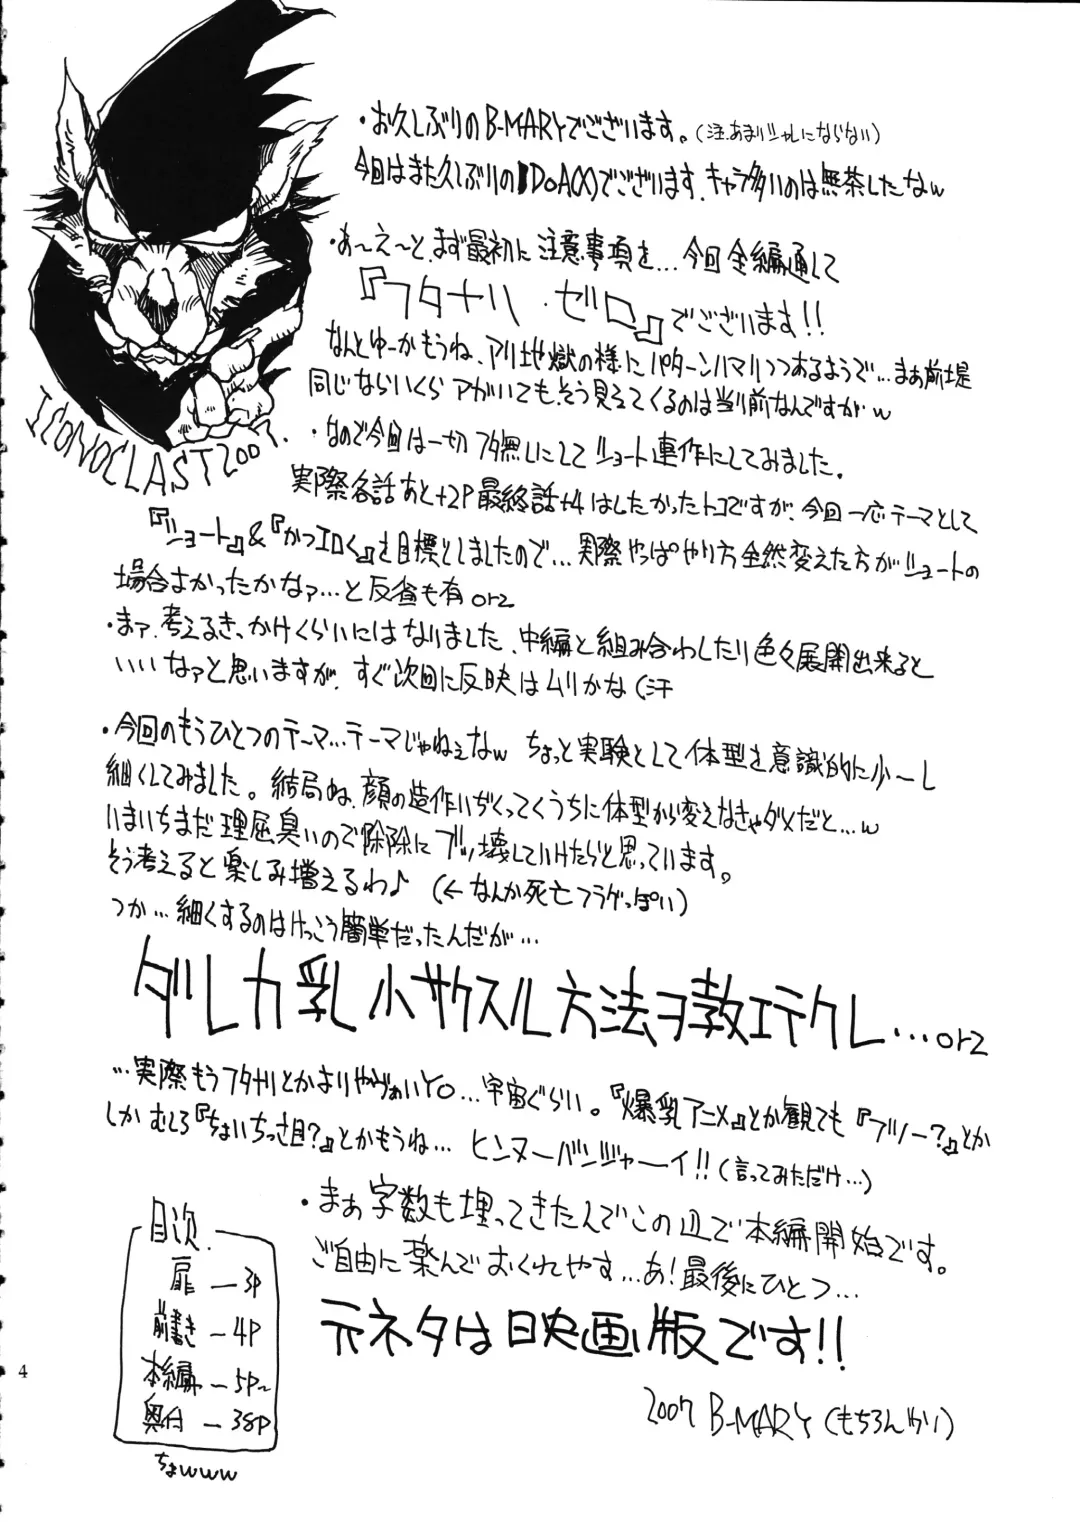 ICONOCLAST2007.
・お久しぶりのB-MARYでございます。(注.あまりシャレにならない)
今回はまた久しぶりのDOA(X)でございます.キャラ多いのは無茶したなw
・あ〜え〜と.まず最初に注意事項を…今回全編通して
『フタナリ・ゼロ』でございます!!
なんとゆーかもうね、アリ地獄の様にパターンハマリつつあるようで…まぁ前堤
同じならいくらアガいても.そう見えてくるのは当り前なんですがw
・なので今回は一切フタ無しにしてショート連作にしてみました.
実際各話あと+2P最終話+4はしたかったトコですが、今回一応テーマとして
『ショート』&『かつエロく』を目標としましたので…実際やっぱやり方全然変えた方がショートの
場合よかったかなァ…と反省も有orz
・まァ.考えるきっかけくらいにはなりました、中編と組み合わしたり色々展開出来ると
いいなァと思いますが.すぐ次回に反映はムリかな(汗
・今回のもうひとつのテーマ…テーマじゃねぇなw ちょっと実験として体型を意識的に少〜し
細くしてみました。結局ね、顔の造作いぢくってくうちに体型から変えなきゃダメだと…w
いまいちまだ理屈臭いので除除にブッ壊していけたらと思っています。
そう考えると楽しみ増えるわ♪ (←なんか死亡フラグっぽい)
つか…細くするのはけっこう簡単だったんだが…
ダレカ乳小サクスル方法ヲ教エテクレ…orz
…実際もうフタナリとかよりやヴぁいYO…宇宙ぐらい。『爆乳アニメ』とか観ても『フツー?』とか
しかむしろ『ちょいちっさ目?』とかもうね… ヒンヌーバンジャーイ!!(言ってみただけ…)
・まぁ字数も埋ってきたんでこの辺で本編開始です。
ご自由に楽んでおくれやす…あ!最後にひとつ…
元ネタは映画版です!!
2007 B-MARY(もちろん)
目次.
扉 — 3P
前書き 〜 4P
本編 〜 5P〜
奥付 — 38P
ちょwww
4